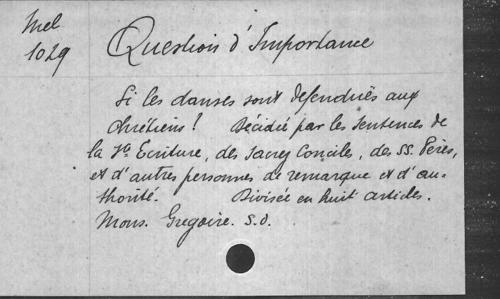 Mel
1029
Question d'Importance
Si les danses sont defendües aux
chrétiens! Décidée par les sentences de
la Ste Ecriture, des sacrez Concile, des SS. Pères,
et d'autres personnes de remarque et d'au-
thorité. Divisée en huit articles.
Mons. Gregoire. S.D.